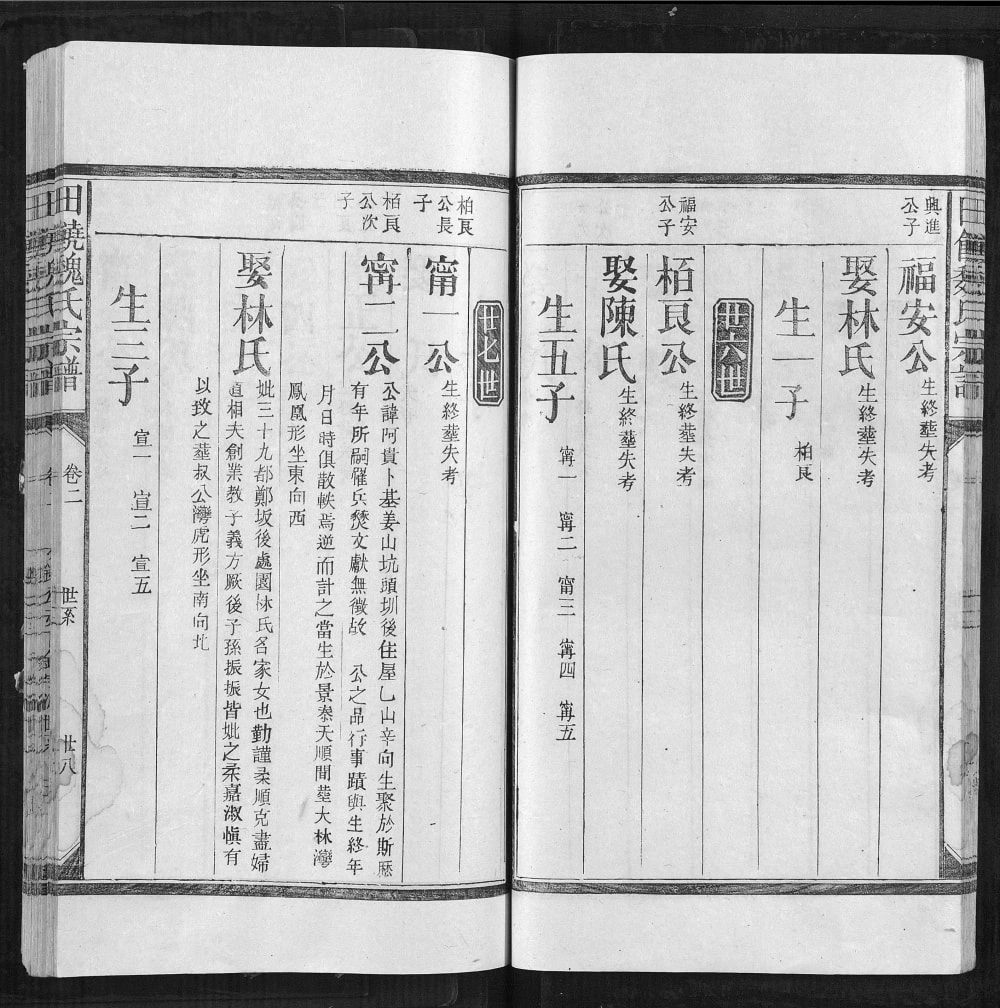 興進
公子
福安公 生終塟失考
娶林氏 生終塟失考
生一子 栢良
廿六世
福安
公子
栢良公 生終塟失考
娶陳氏 生終塟失考
生五子 甯一 甯二 甯三 甯四 甯五
廿七世
栢良
公長
子
甯一公 生終塟失考
栢良
公次
子
甯二公
公諱阿貴卜基姜山坑頭圳後住屋乚山辛向生聚於斯歷
有年所嗣罹兵燹文獻無徵故 公之品行事蹟與生終年
月日時俱散軼焉逆而計之當生於景泰天順間塟大林灣
鳳凰形坐東向西
娶林氏
妣三十九都鄭坂後處園林氏名家女也勤謹柔順克盡婦
道相夫創業教子義方厥後子孫振振皆妣之柔嘉淑慎有
以致之塟叔公灣虎形坐南向北
生三子 宣一 宣二 宣五
魏氏宗譜 卷二 世系 廿八